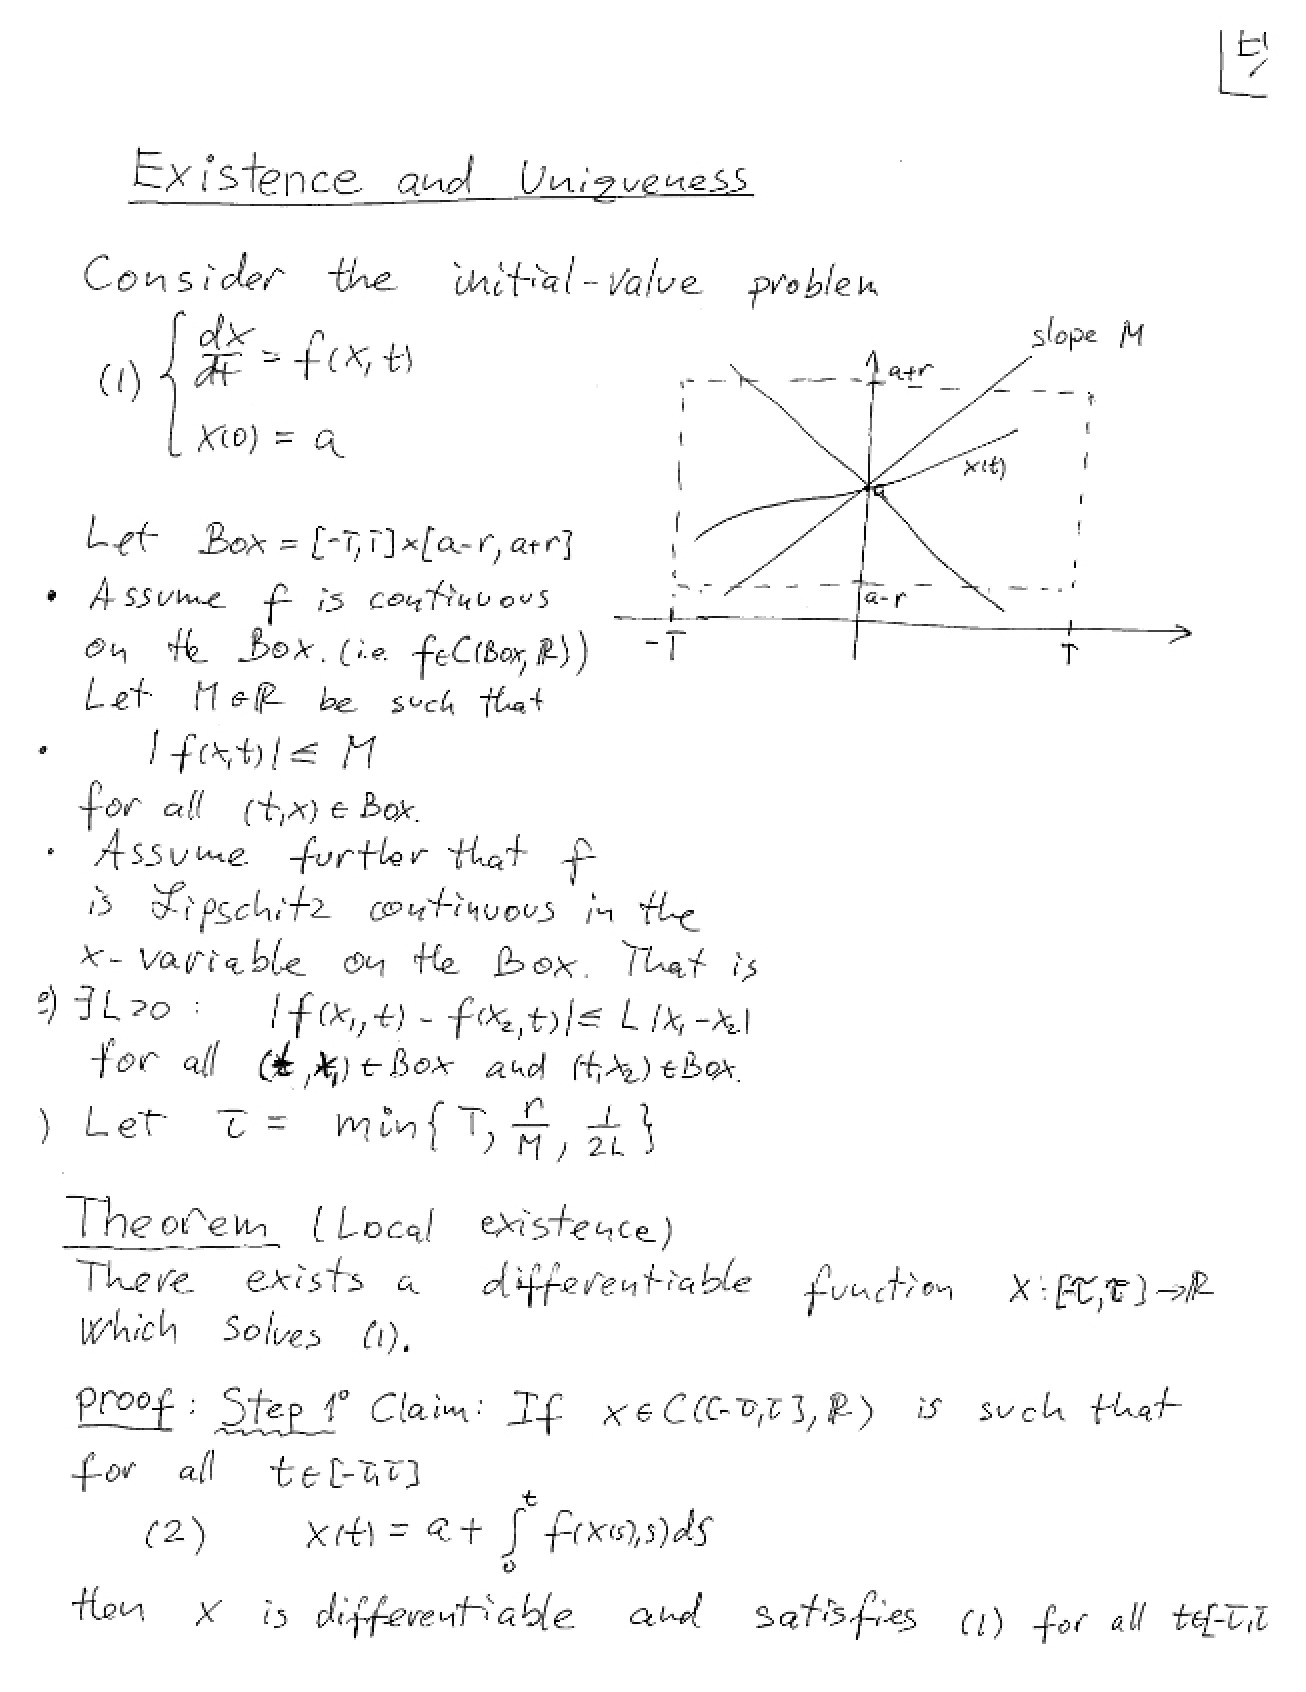 E1
Existence and Uniqueness
Consider the initial-value problem
(1) { dx/dt = f(x, t)
x(0) = a
slope M
a+r
x(t)
a
a-r
-T
T
Let Box = [-T,T]×[a-r, a+r]
• Assume f is continuous
on the Box. (i.e. f∈C(Box, ℝ))
Let M∈ℝ be such that
• |f(x,t)| ≤ M
for all (t,x) ∈ Box.
• Assume further that f
is Lipschitz continuous in the
x-variable on the Box. That is
∃L>0 : |f(x₁,t) - f(x₂,t)| ≤ L|x₁-x₂|
for all (t,x₁) ∈ Box and (t,x₂) ∈ Box.
) Let τ = min{T, r/M, 1/2L}
Theorem (Local existence)
There exists a differentiable function x:[-τ,τ]→ℝ
which solves (1).
proof: Step 1° Claim: If x∈C([-τ,τ],ℝ) is such that
for all t∈[-τ,τ]
(2) x(t) = a + ∫₀ᵗ f(x(s),s)ds
then x is differentiable and satisfies (1) for all t∈[-τ,τ